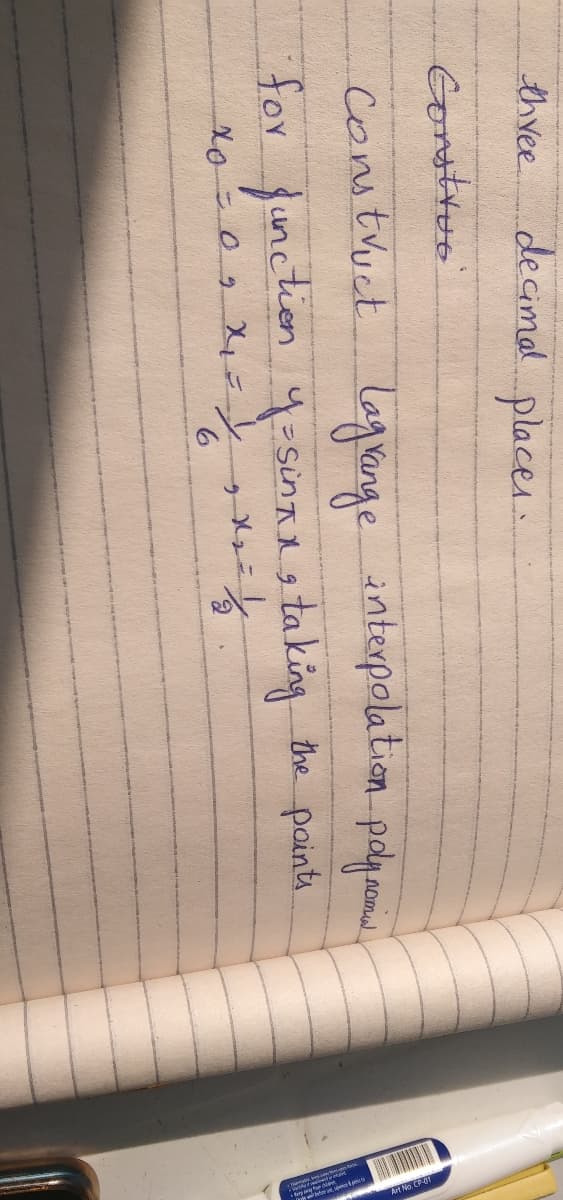 three decimal places.
Construc
Construct Lagrange interpolation polynomial
for function y = sin πx, taking the points
x₀ = 0, x₁ = 1/6, x₂ = 1/2.
Art No. CP-01